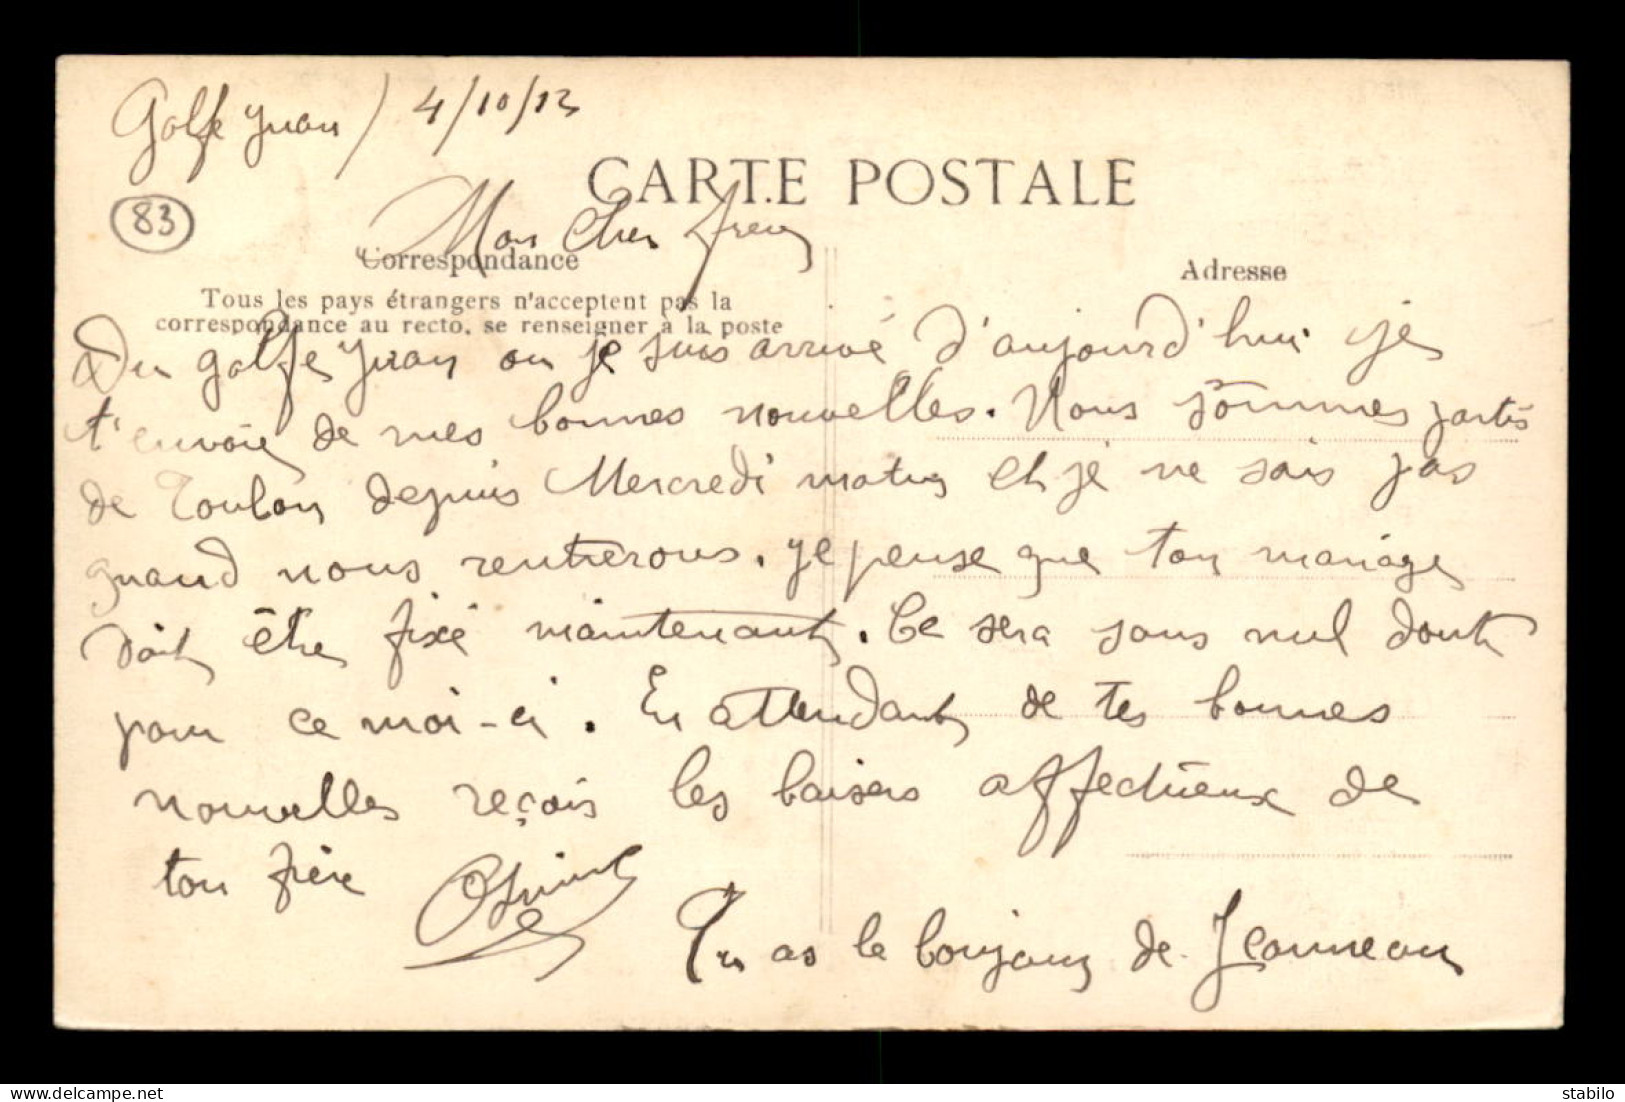 Golfe Juan / 4/10/12
83
CARTE POSTALE
Mon Cher Frère
Correspondance
Adresse
Tous les pays étrangers n'acceptent pas la
correspondance au recto, se renseigner à la poste
Du golfe Juan ou je suis arrivé d'aujourd'hui je
t'envoie de mes bonnes nouvelles. Nous sommes partis
de Toulon depuis Mercredi matin et je ne sais pas
quand nous rentrerons. Je pense que ton mariage
doit être fixé maintenant. Ce sera sans nul doute
pour ce moi-ci. En attendant de tes bonnes
nouvelles reçois les baisers affectueux de
ton frère
Tu as le bonjour de Jeanneau
delcampe.net
stabilo